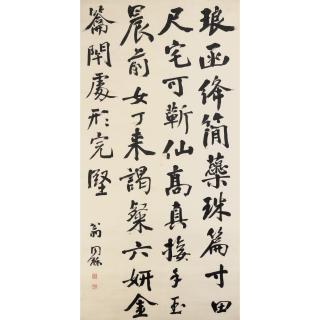 琅函絳簡蘂珠篇寸田
尺宅可蘄仙高真接手玉
晨前女丁来謁粲六妍金
籥閉處形完堅
翁同龢